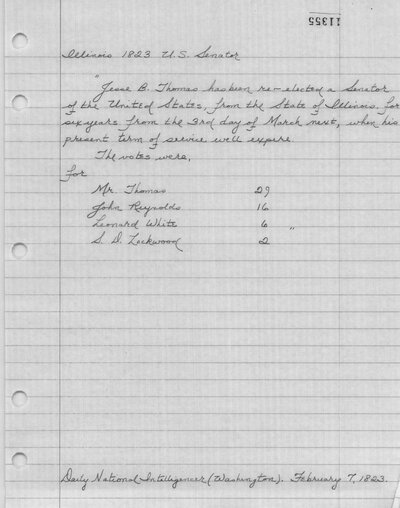 11355
Illinois 1823 U.S. Senator
"Jesse B. Thomas has been re-elected a Senator
of the United States, from the State of Illinois, for
six years from the 3rd day of March next, when his
present term of service will expire.
The votes were,
for
Mr. Thomas 29
John Reynolds 16
Leonard White 6 "
S. D. Lockwood 2
Daily National Intelligencer (Washington). February 7, 1823.